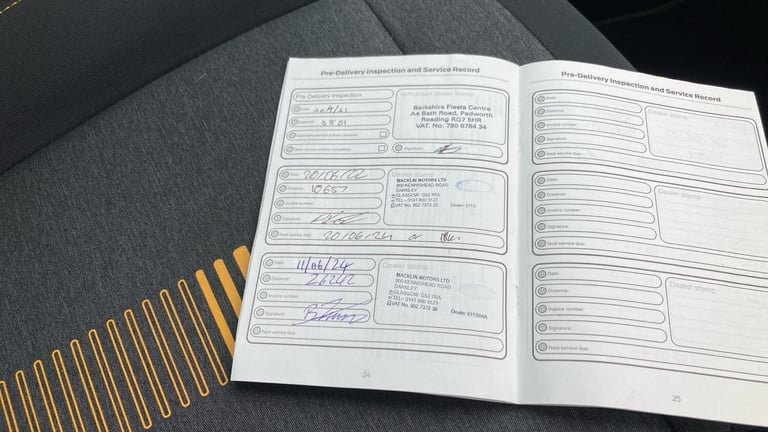 Pre-Delivery Inspection and Service Record
Pre Delivery Inspection
Date:
Distance:
Signature:
Authorised dealer stamp
Berkshire Fiesta Centre
A4 Bath Road, Padworth
Reading RG7 5HR
VAT. No. 780 6784 34
Date: 20/06/22
Distance: 10657
Invoice number:
Signature:
Next service due: 20/06/24 or
Dealer stamp
MACKLIN MOTORS LTD
900 KENNISHEAD ROAD
DARNLEY
GLASGOW G53 7RA
TEL:- 0141 800 3123
VAT No. 902 7372 38
Date: 11/06/24
Distance: 26242
Invoice number:
Signature:
Next service due:
Dealer stamp
MACKLIN MOTORS LTD
900 KENNISHEAD ROAD
DARNLEY
GLASGOW G53 7RA
TEL:- 0141 800 3123
VAT No. 902 7372 38
24
Pre-Delivery Inspection and Service Record
Date:
Distance:
Invoice number:
Signature:
Next service due:
Dealer stamp
Date:
Distance:
Invoice number:
Signature:
Next service due:
Dealer stamp
Date:
Distance:
Invoice number:
Signature:
Next service due:
Dealer stamp
25